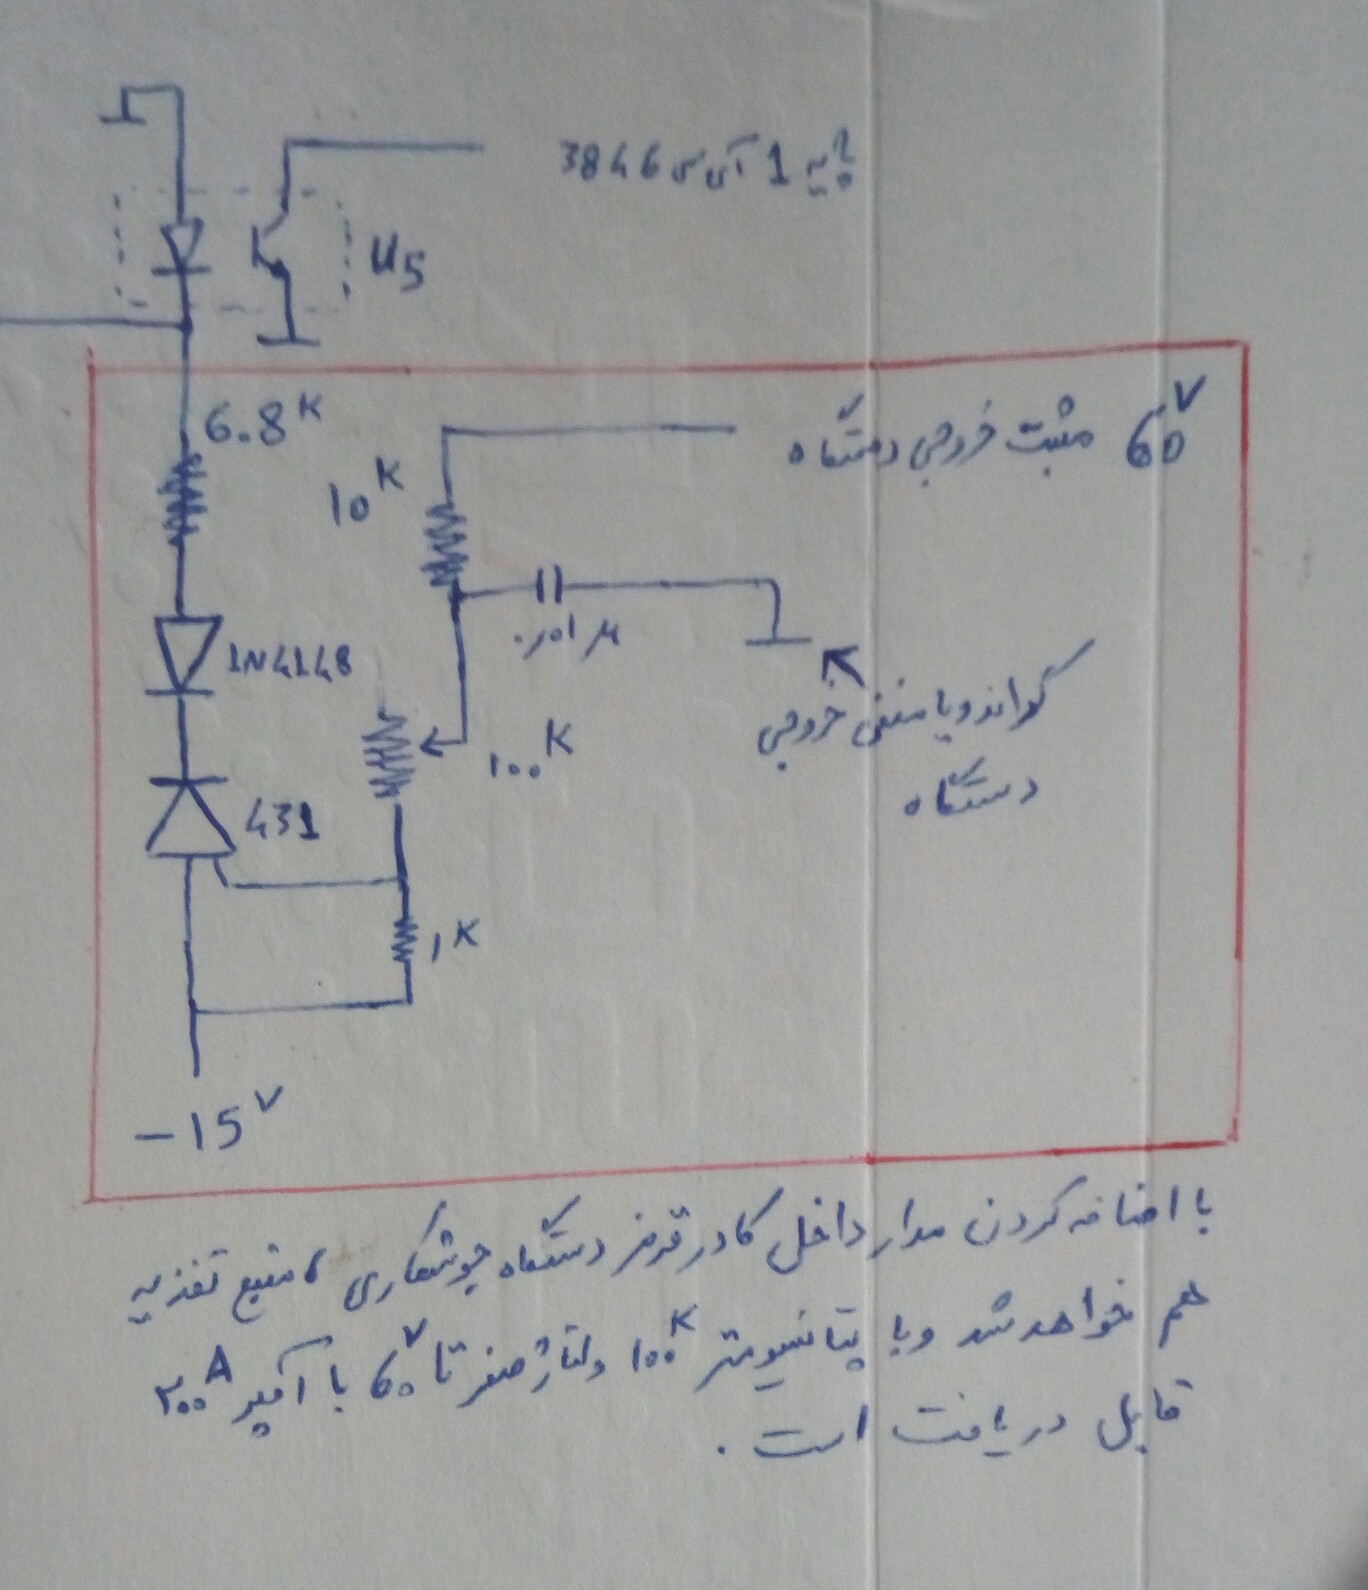 پایه 1 آی سی 3846
U5
6.8K
60V مثبت خروجی دستگاه
10K
1N4148
0/01 μ
100K
گراند و یا منفی خروجی
دستگاه
431
1K
-15V
با اضافه کردن مدار داخل کادر قرمز دستگاه جوشکاری، منبع تغذیه
هم خواهد شد و با پتانسیومتر 100K ولتاژ صفر تا 60V با آمپر 200A
قابل دریافت است.